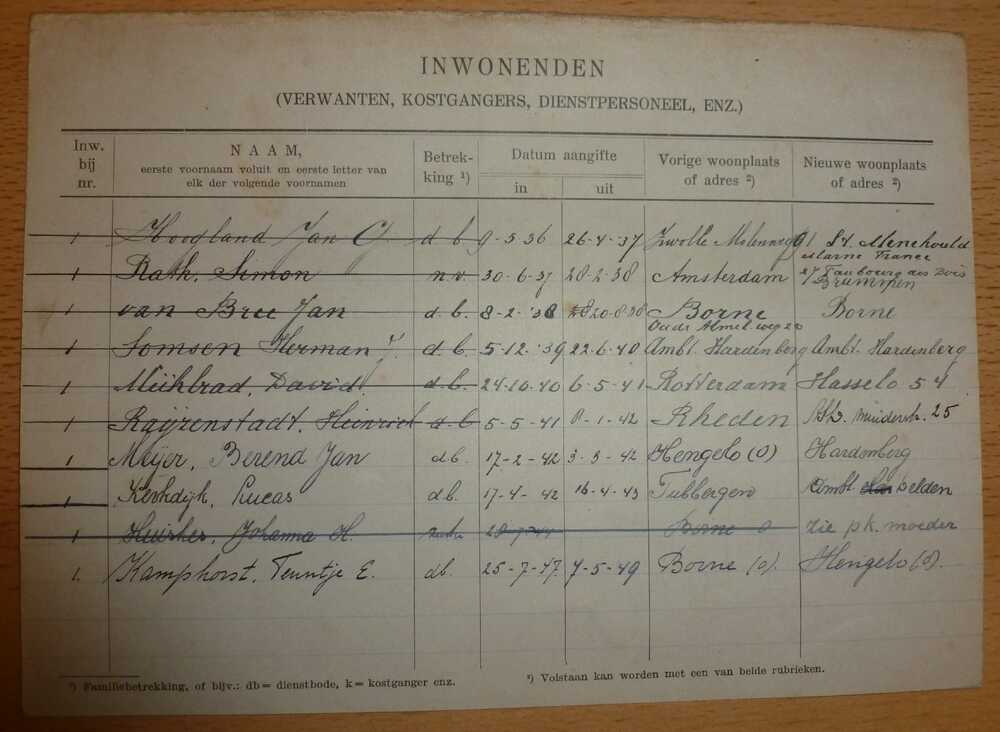 INWONENDEN
(VERWANTEN, KOSTGANGERS, DIENSTPERSONEEL, ENZ.)
Inw. bij nr. NAAM, eerste voornaam voluit en eerste letter van elk der volgende voornamen Betrekking ¹) Datum aangifte in uit Vorige woonplaats of adres ²) Nieuwe woonplaats of adres ²)
1 Hoogland Jan G d.b. 9-5-36 26-4-37 Zwolle St. Menehould
Marne France
27 Faubourg des Bois
1 Rath, Simon n.v. 30-6-37 28-2-38 Amsterdam Brummen
1 van Bree Jan d.b. 8-2-38 20-8-38 Borne Borne
Oude Almel.weg 20
1 Somsen Herman d.b. 5-12-39 22-6-40 Ambt Hardenberg Ambt. Hardenberg
1 David d.b. 24-10-40 6-5-41 Rotterdam Hasselo 54
1 Heinrich d.b. 5-5-41 1-42 Rheden 25
1 Meijer, Berend Jan db. 17-2-42 3-3-42 Hengelo (O) Hardenberg
1 Kerkdijk, Lucas db. 17-4-42 16-4-43 Tubbergen Ambt Delden
1 Johanna H. 28-7-44 Borne O zie pk. moeder
1. Kamphorst, Teuntje E. db. 25-7-47 7-5-49 Borne (O) Hengelo (O).
¹) Familiebetrekking, of bijv.: db = dienstbode, k = kostganger enz.
²) Volstaan kan worden met een van beide rubrieken.